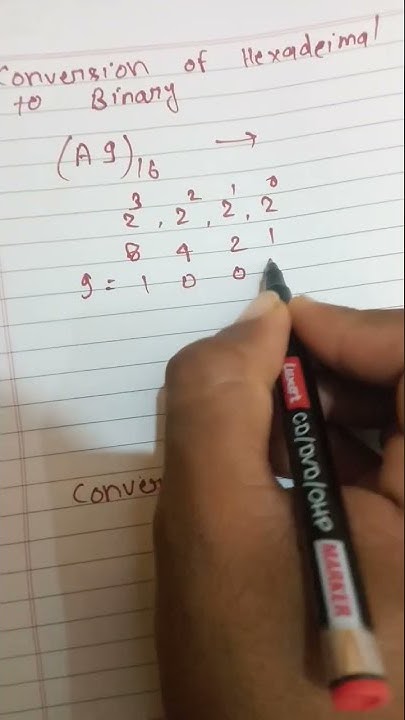 Conversion of Hexadeimal
to Binary
(A9)16 →
2³, 2², 2¹, 2⁰
8 4 2 1
9 = 1 0 0
Conver
Luxor CD/DVD/OHP MARKER